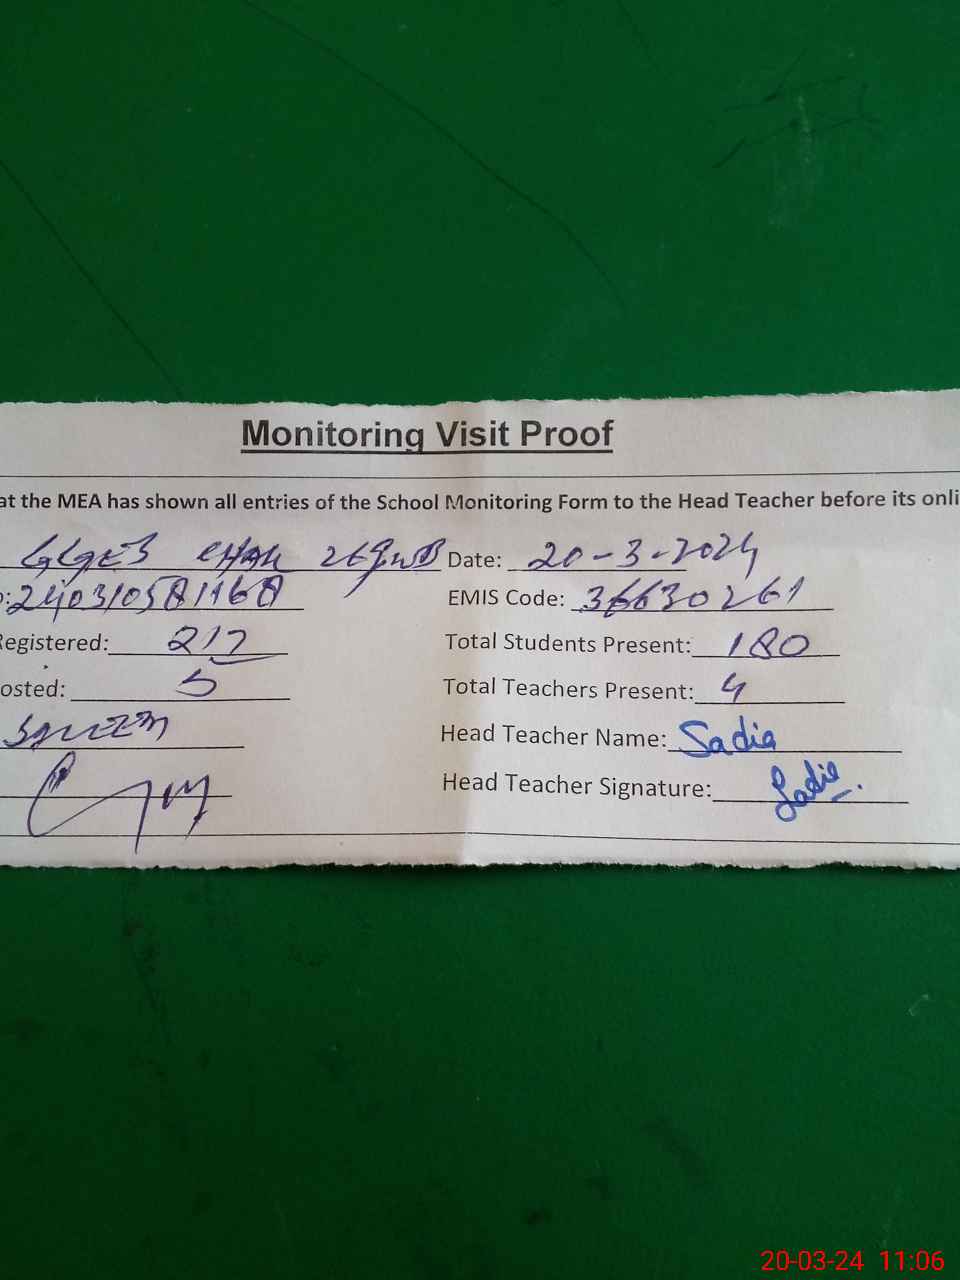 Monitoring Visit Proof
at the MEA has shown all entries of the School Monitoring Form to the Head Teacher before its onli
GGES CHAK Date: 20-3-2024
EMIS Code: 36630261
Registered: 217 Total Students Present: 180
osted: 5 Total Teachers Present: 4
Head Teacher Name: Sadia
Head Teacher Signature: Sadia.
20-03-24 11:06